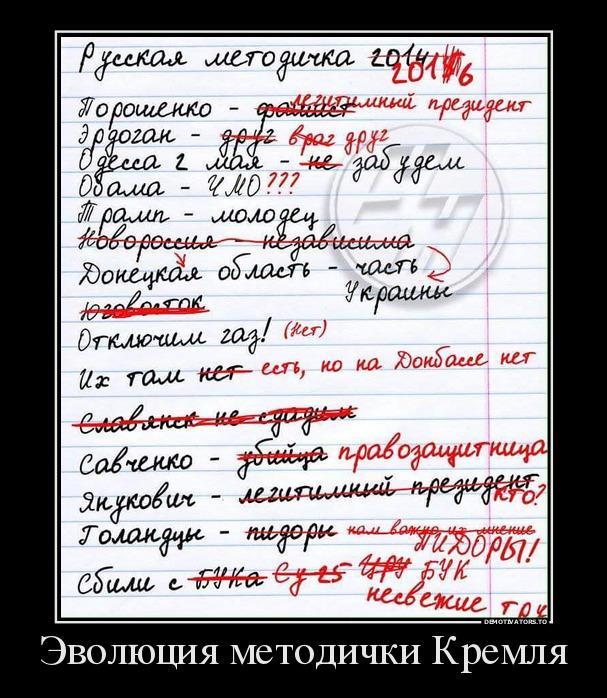 Русская методичка 2014 2016
Порошенко - фашист легитимный президент
Эрдоган - друг враг друг
Одесса 2 мая - не забудем
Обама - ЧМО???
Трамп - молодец
Новороссия - независима
Донецкая область - часть Украины
Юговосток
Отключили газ! (Нет)
Их там нет есть, но на Донбассе нет
Славянск не сдадим
Савченко - убийца правозащитница
Янукович - легитимный президент КТО?
Голандцы - пидоры нам важно их мнение ПИДОРЫ!
Сбили с БУКа Су-25 ЦРУ БУК
несвежие тру
DEMOTIVATORS.TO
Эволюция методички Кремля